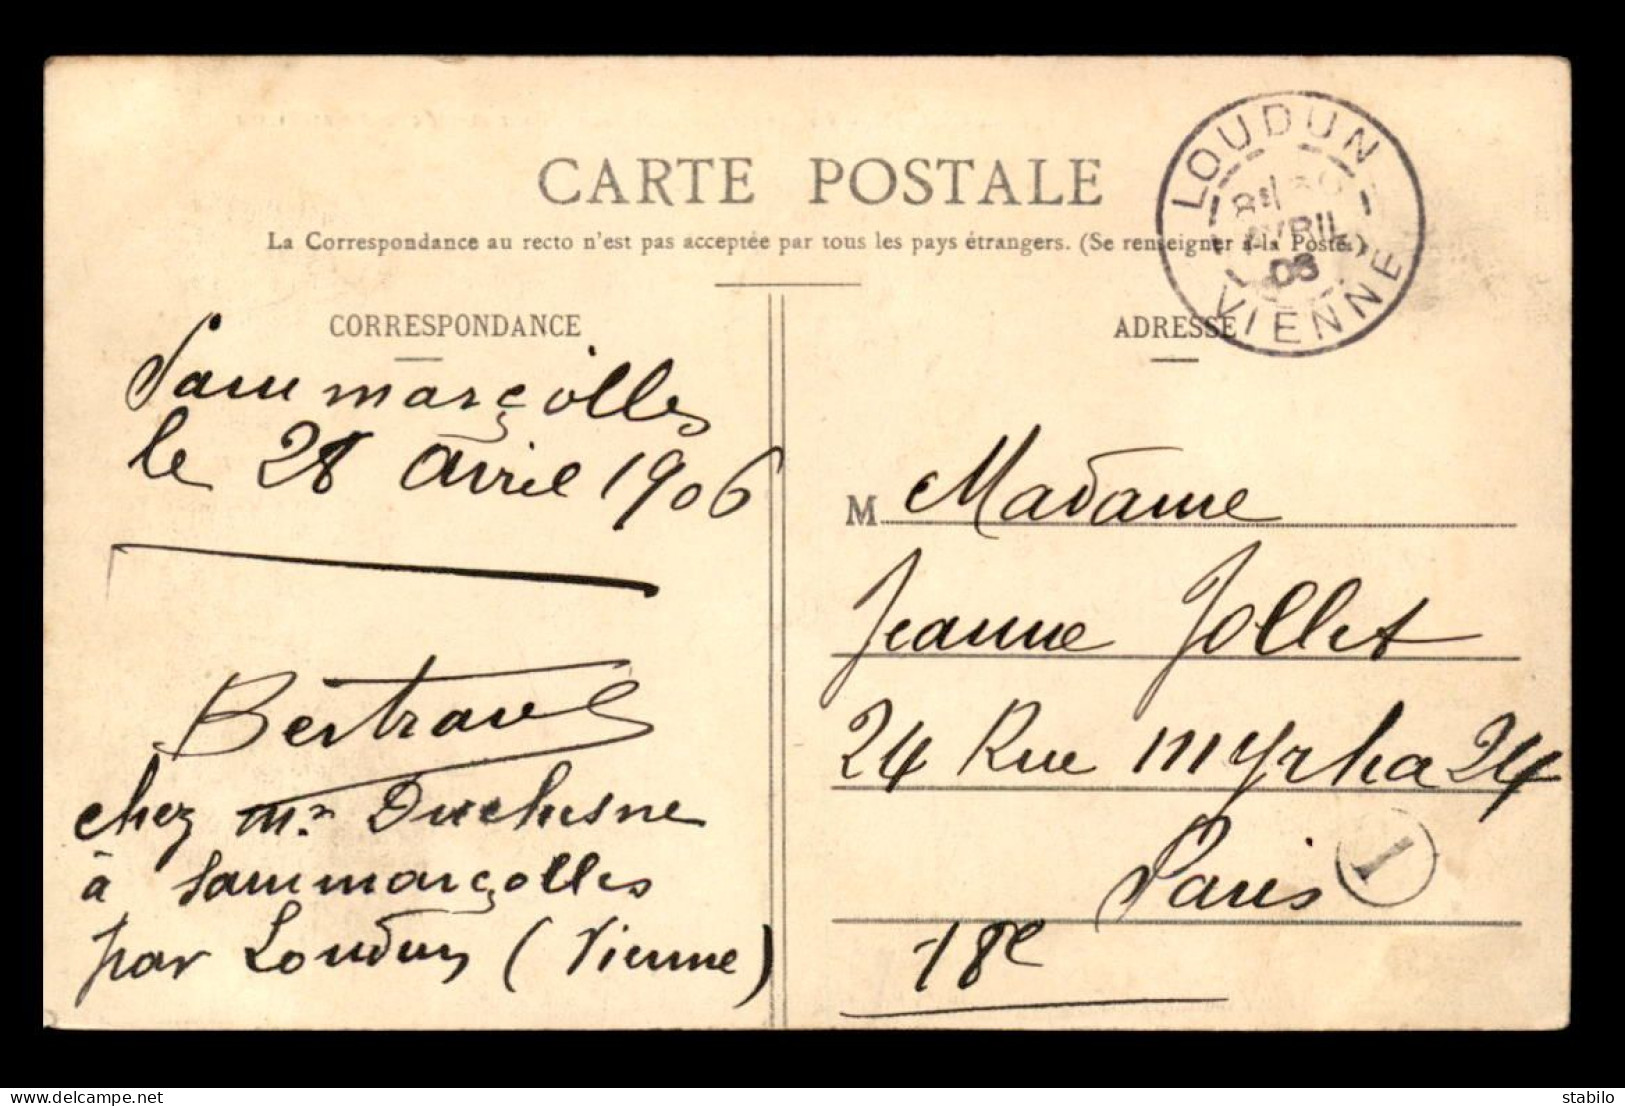 CARTE POSTALE
La Correspondance au recto n'est pas acceptée par tous les pays étrangers. (Se renseigner à la Poste.)
LOUDUN
AVRIL
06
VIENNE
CORRESPONDANCE
Sammarçolles
le 28 avril 1906
Bertrand
chez Mr Duchesne
à Sammarçolles
par Loudun (Vienne)
ADRESSE
M Madame
Jeanne Jollet
24 Rue Myrha 24
Paris
18e
1
delcampe.net
stabilo